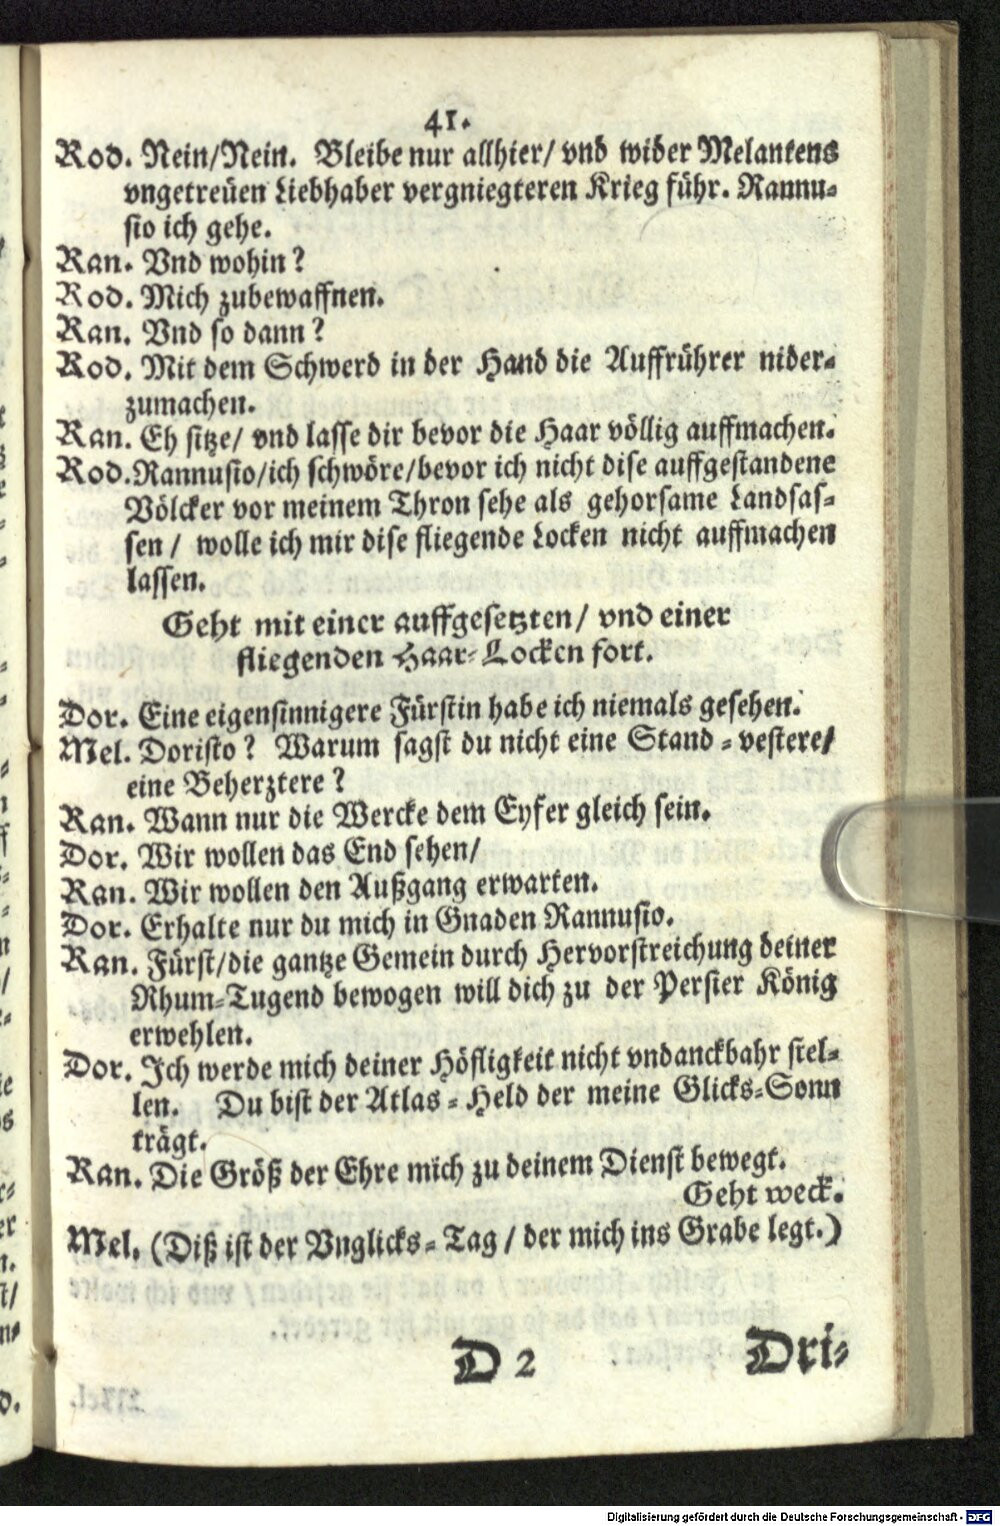 41.
Rod. Nein/Nein. Bleibe nur allhier/ vnd wider Melantens
vngetreüen Liebhaber vergniegteren Krieg führ. Rannu-
sio ich gehe.
Ran. Vnd wohin?
Rod. Mich zubewaffnen.
Ran. Vnd so dann?
Rod. Mit dem Schwerd in der Hand die Auffrührer nider-
zumachen.
Ran. Eh sitze/ vnd lasse dir bevor die Haar völlig auffmachen.
Rod. Rannusio/ich schwöre/bevor ich nicht dise auffgestandene
Völcker vor meinem Thron sehe als gehorsame Landsas-
sen / wolle ich mir dise fliegende Locken nicht auffmachen
lassen.
Geht mit einer auffgesetzten/ vnd einer
fliegenden Haar-Locken fort.
Dor. Eine eigensinnigere Fürstin habe ich niemals gesehen.
Mel. Doristo? Warum sagst du nicht eine Stand-vestere/
eine Beherztere?
Ran. Wann nur die Wercke dem Eyfer gleich sein.
Dor. Wir wollen das End sehen/
Ran. Wir wollen den Außgang erwarten.
Dor. Erhalte nur du mich in Gnaden Rannusio.
Ran. Fürst/die gantze Gemein durch Hervorstreichung deiner
Rhum-Tugend bewogen will dich zu der Persier König
erwehlen.
Dor. Ich werde mich deiner Höfligkeit nicht vndanckbahr stel-
len. Du bist der Atlas-Held der meine Glicks-Sonn
trägt.
Ran. Die Größ der Ehre mich zu deinem Dienst bewegt.
Geht weck.
Mel. (Diß ist der Vnglicks-Tag / der mich ins Grabe legt.)
D 2 Dri-
Digitalisierung gefördert durch die Deutsche Forschungsgemeinschaft - DFG